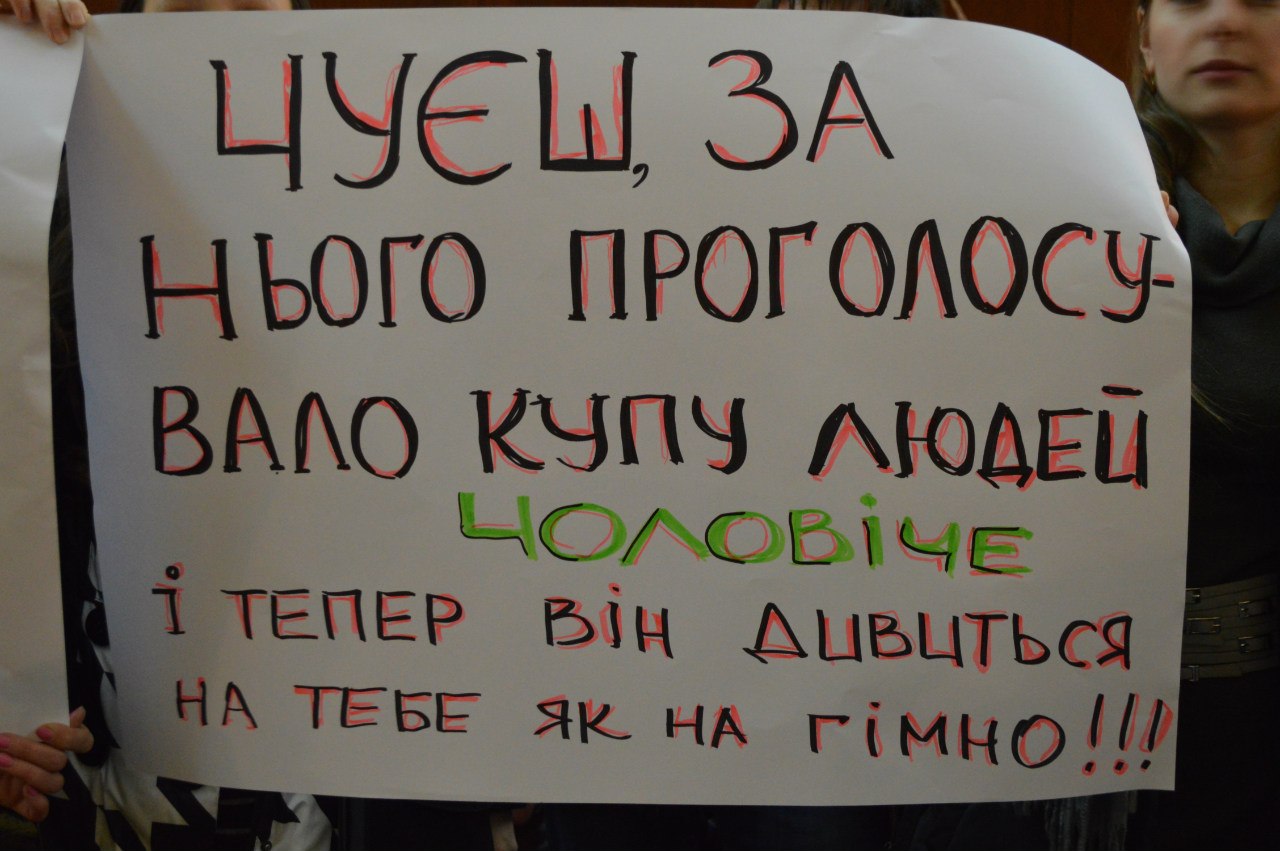 ЧУЄШ, ЗА
НЬОГО ПРОГОЛОСУ-
ВАЛО КУПУ ЛЮДЕЙ
ЧОЛОВІЧЕ
І ТЕПЕР ВІН ДИВИТЬСЯ
НА ТЕБЕ ЯК НА ГІМНО!!!